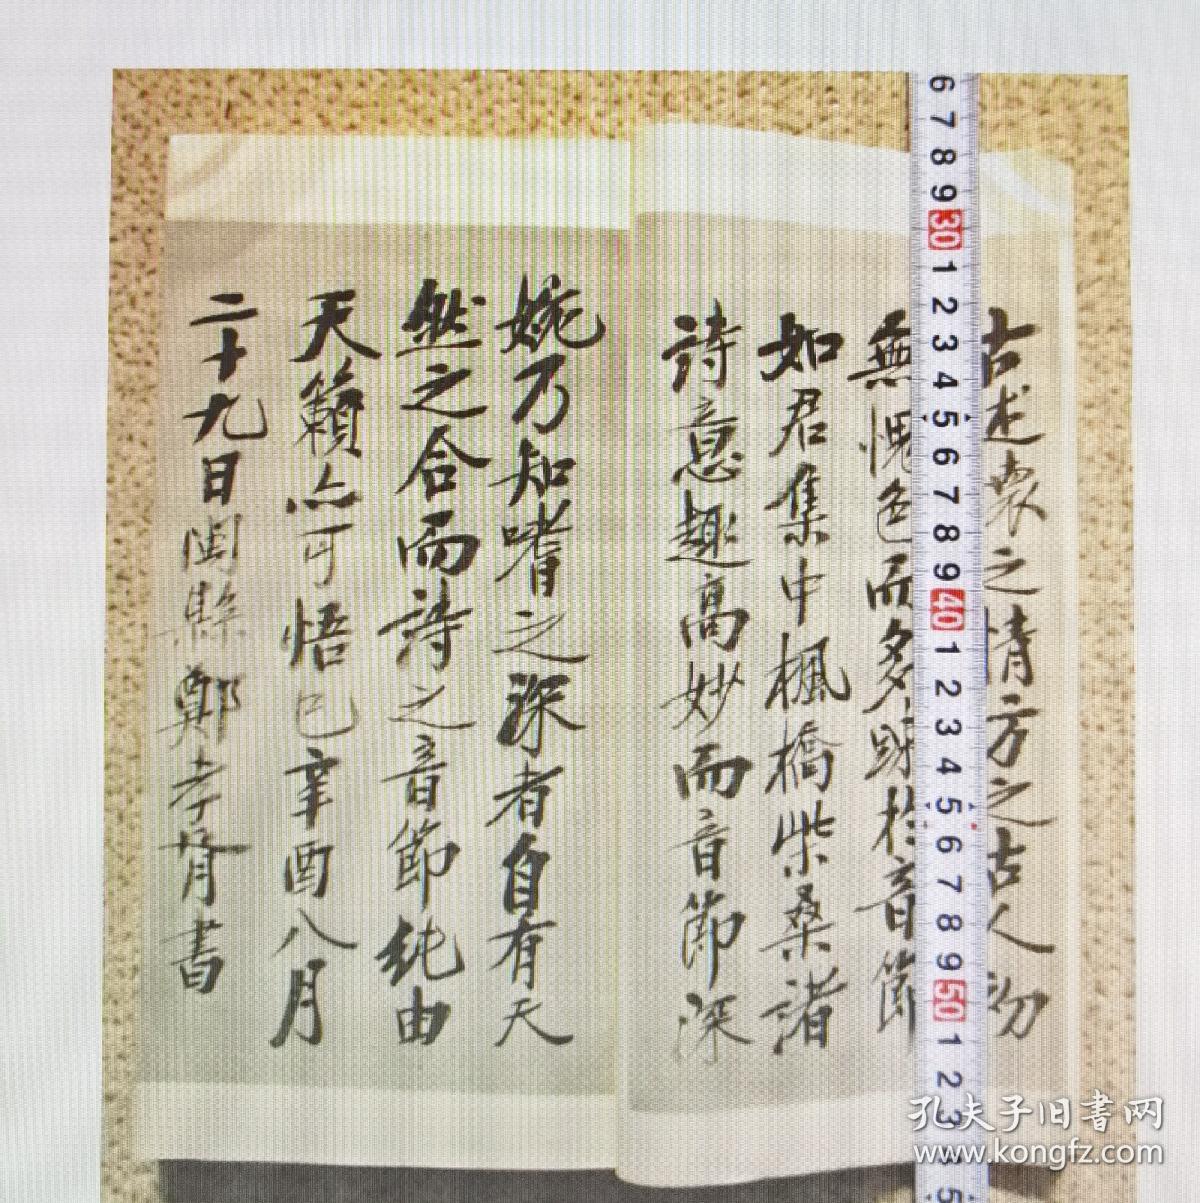 古述衷之情方之古人初
無愧色而多財於音節
如君集中楓橋柴桑諸
詩意趣高妙而音節深
婉乃知嗜之深者自有天
然之合而詩之音節純由
天籟亦可悟已辛酉八月
二十九日閩縣鄭孝胥書
6 7 8 9 30 1 2 3 4 5 6 7 8 9 40 1 2 3 4 5 6 7 8 9 50 1 2 3
孔夫子旧書网
www.kongfz.com